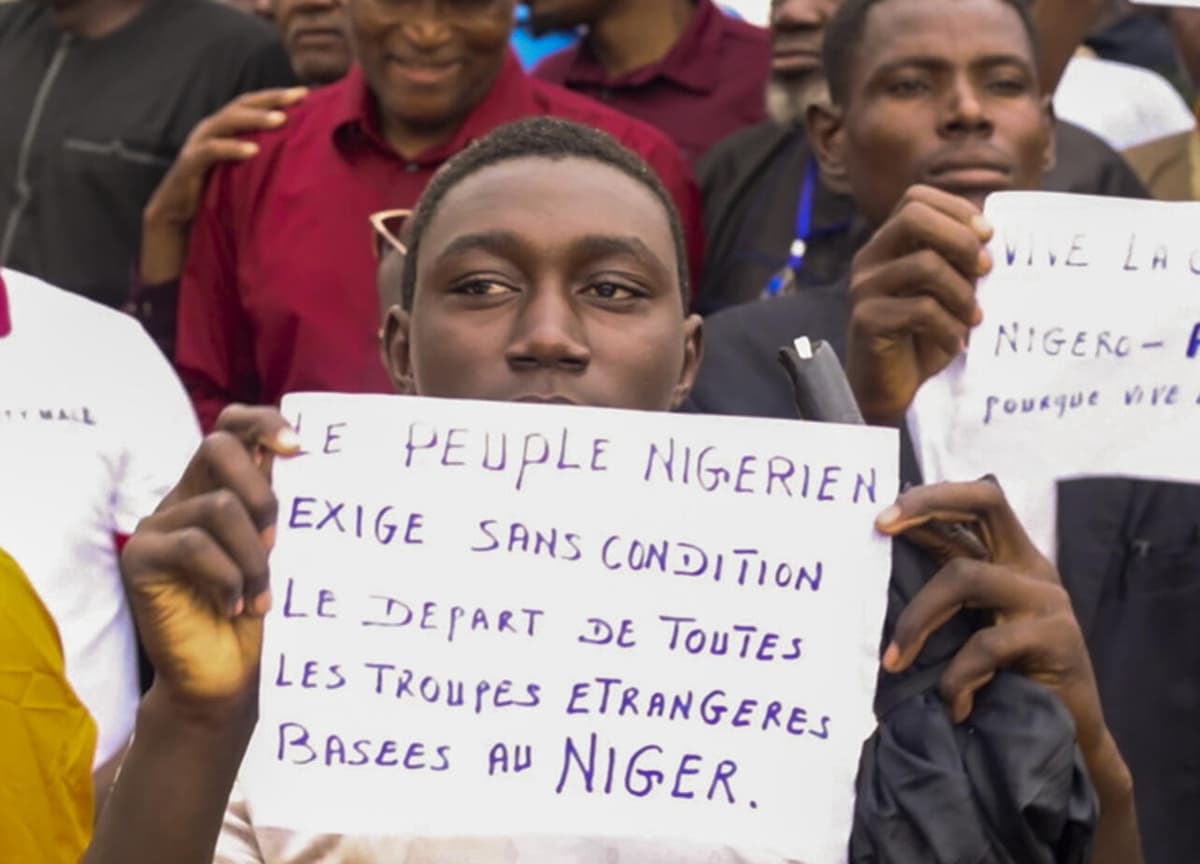 LE PEUPLE NIGERIEN
EXIGE SANS CONDITION
LE DEPART DE TOUTES
LES TROUPES ETRANGERES
BASEES AU NIGER.
VIVE LA
NIGERO-
POURQUE VIVE